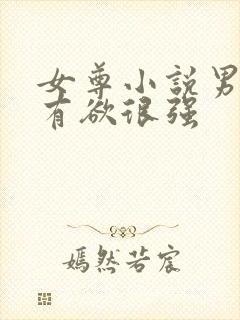 女尊小説男
有欲很强
嫣然若宸